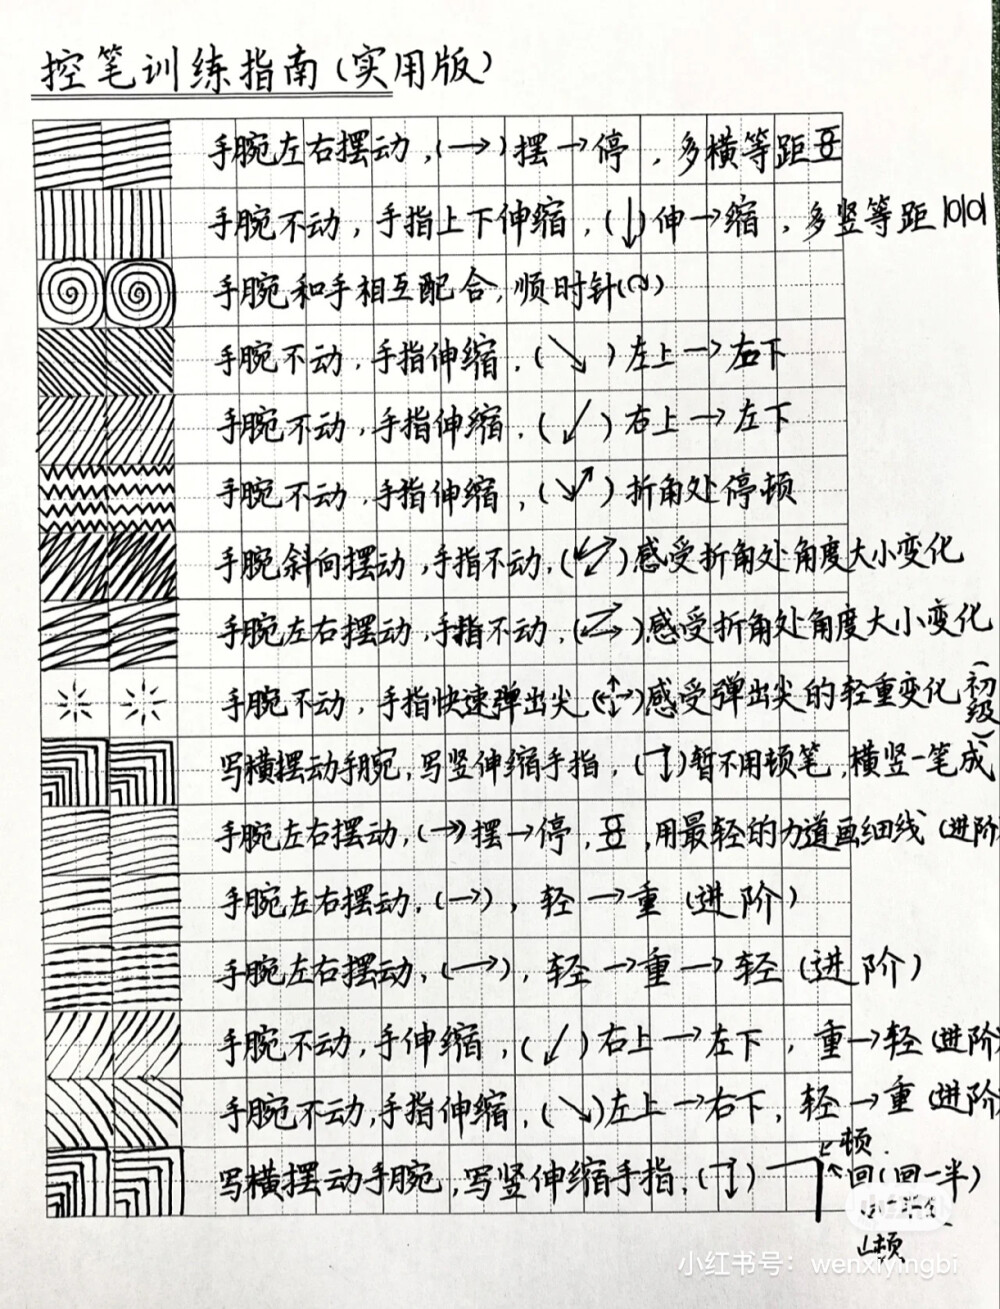 控笔训练指南(实用版)
手腕左右摆动,(→)摆→停,多横等距
手腕不动,手指上下伸缩,(↓)伸→缩,多竖等距
手腕和手相互配合,顺时针(↷)
手腕不动,手指伸缩,(↘)左上→右下
手腕不动,手指伸缩,(↙)右上→左下
手腕不动,手指伸缩,(↘↗)折角处停顿
手腕斜向摆动,手指不动,(↙↗)感受折角处角度大小变化
手腕左右摆动,手指不动,()感受折角处角度大小变化
手腕不动,手指快速弹出尖,()感受弹出尖的轻重变化(初级)
写横摆动手腕,写竖伸缩手指,(→↓)暂不用顿笔,横竖一笔成
手腕左右摆动,(→)摆→停,用最轻的力道画细线(进阶
手腕左右摆动,(→),轻→重(进阶)
手腕左右摆动,(→),轻→重→轻(进阶)
手腕不动,手伸缩,(↙)右上→左下,重→轻(进阶
手腕不动,手指伸缩,(↘)左上→右下,轻→重(进阶
写横摆动手腕,写竖伸缩手指,(→↓)
顿.
回(回一半)
顿
小红书号：wenxiyingbi